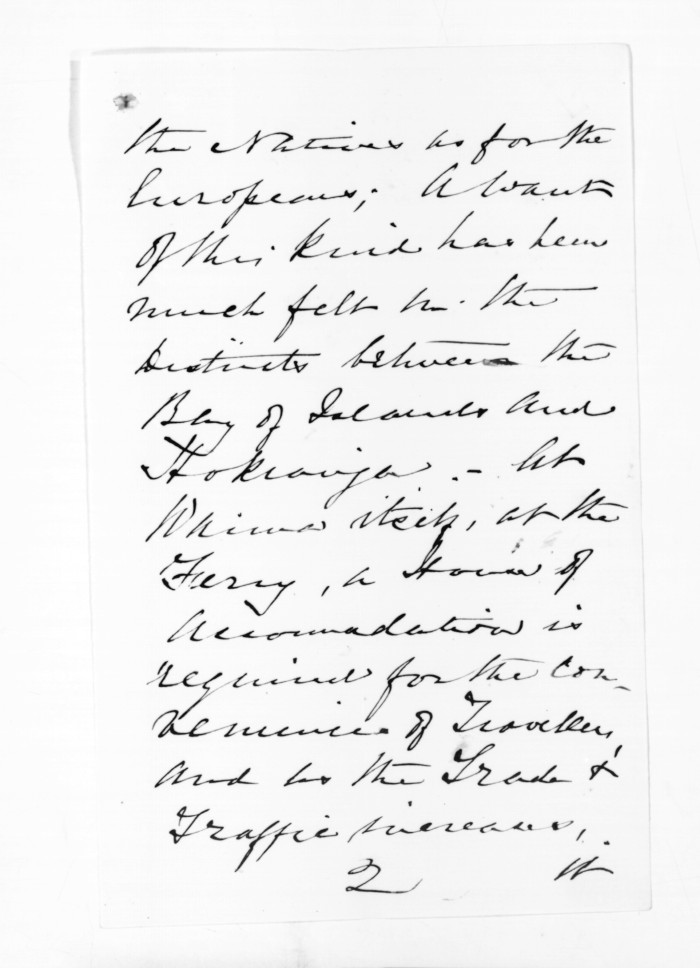 the Natives as for the
Europeans; A want
of this kind has been
much felt in the
Districts between the
Bay of Islands and
Hokianga. - At
Waima itself, at the
Ferry, a House of
Accommodation is
required for the con-
venience of Travellers,
and as the Trade &
Traffic increases,
2 it